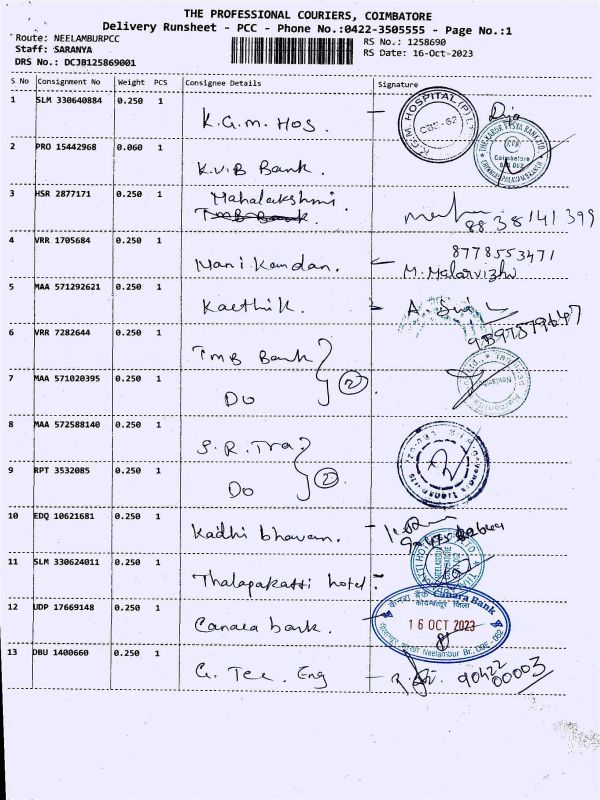 THE PROFESSIONAL COURIERS, COIMBATORE
Delivery Runsheet - PCC - Phone No.:0422-3505555 - Page No.:1
Route: NEELAMBURPCC
RS No.: 1258690
Staff: SARANYA
RS Date: 16-Oct-2023
DRS No.: DCJB125869001
S No Consignment No Weight PCS Consignee Details Signature
1 SLM 330640884 0.250 1 K.G.M. Hos.
K.G.M. HOSPITAL (P) LTD CBE-62
2 PRO 15442968 0.060 1 K.V.B Bank.
THE KARUR VYSYA BANK LTD
Coimbatore
3 HSR 2877171 0.250 1 Mahalakshmi.
TMB Bank.
8838141399
4 VRR 1705684 0.250 1 Manikandan.
8778553471
M. Malarvizhi
5 MAA 571292621 0.250 1 Karthik.
6 VRR 7282644 0.250 1 TMB Bank
7 MAA 571020395 0.250 1 Do
2
8 MAA 572588140 0.250 1 S.R. Tra
9 RPT 3532085 0.250 1 Do
2
10 EDQ 10621681 0.250 1 Kadhi bhavan.
11 SLM 330624011 0.250 1 Thalapakatti hotel.
12 UDP 17669148 0.250 1 Canara bank.
केनरा बैंक Canara Bank
16 OCT 2023
Neelambur Br, CBE - 062
13 DBU 1400660 0.250 1 G. Tec. Eng
90422
00003